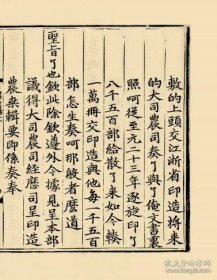 數的上頭交江浙省印造將來
的大司農司奏了與了俺文書裏
照呵從至元二十三年逐旋印了
八千五百部給散了來如今輳
一萬冊交印造與他每一千五百
部怎生奏呵那般者麽道
聖旨了也欽此除欽遵外今據見呈本部
議得大司農司經歷司呈印造
農桑輯要即係奏奉